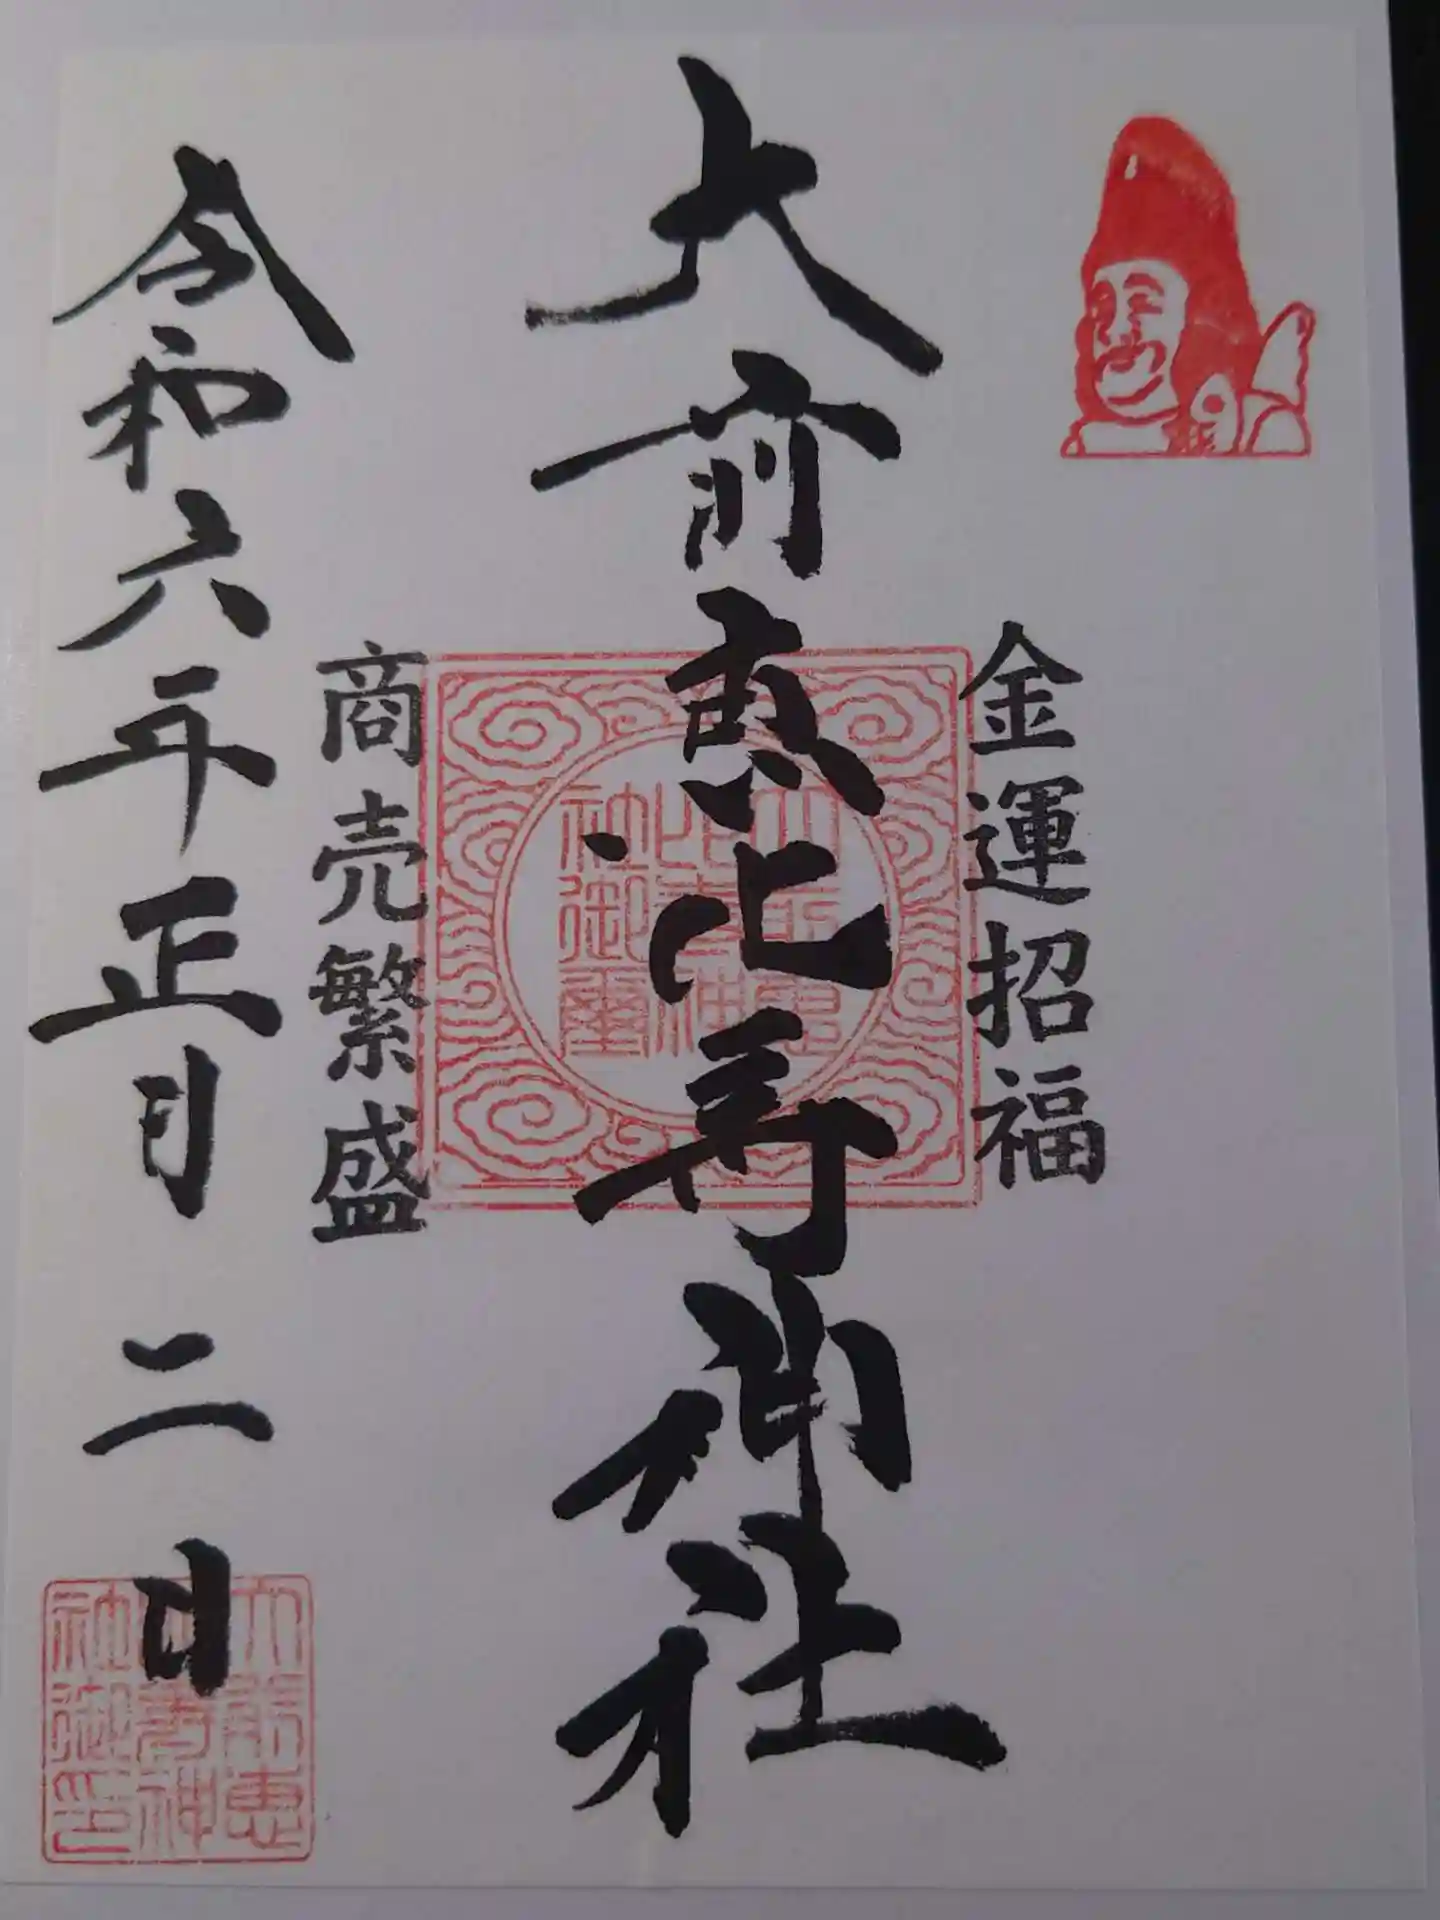 金運招福
大前恵比寿神社
商売繁盛
令和六年正月二日
大前恵
比寿神
社御璽
大前恵
比寿神
社御印